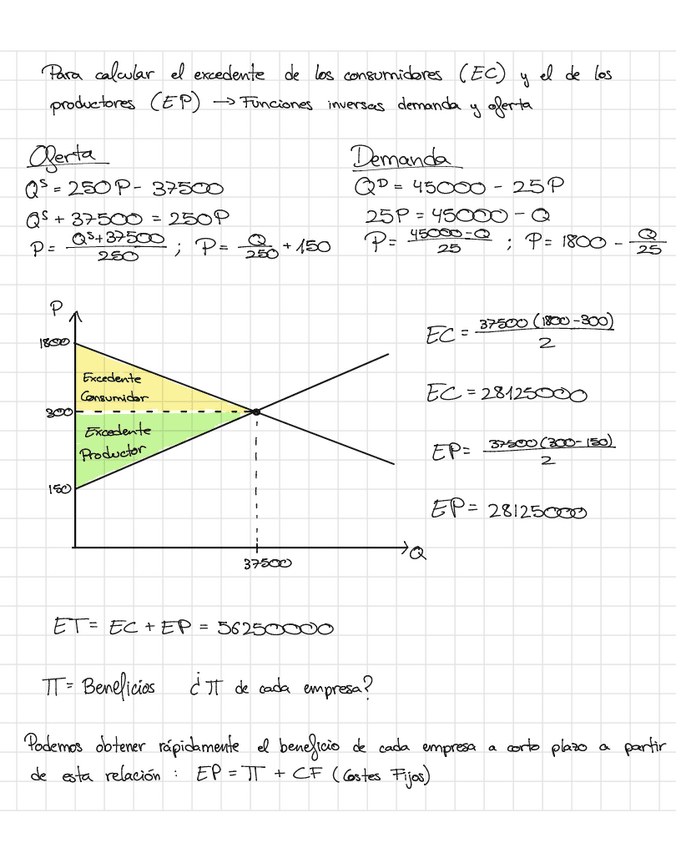 Para calcular el excedente de los consumidores (EC) y el de los
productores (EP) → Funciones inversas demanda y oferta
Oferta
Q^S = 250P - 37500
Q^S + 37500 = 250P
P = (Q^S + 37500)/250 ; P = Q/250 + 150
Demanda
Q^D = 45000 - 25P
25P = 45000 - Q
P = (45000 - Q)/25 ; P = 1800 - Q/25
P
1800
Excedente
Consumidor
300
Excedente
Productor
150
37500
Q
EC = 37500 (1800 - 300)/2
EC = 28125000
EP = 37500 (300 - 150)/2
EP = 28125000
ET = EC + EP = 56250000
π = Beneficios ¿π de cada empresa?
Podemos obtener rápidamente el beneficio de cada empresa a corto plazo a partir
de esta relación : EP = π + CF (Costes Fijos)